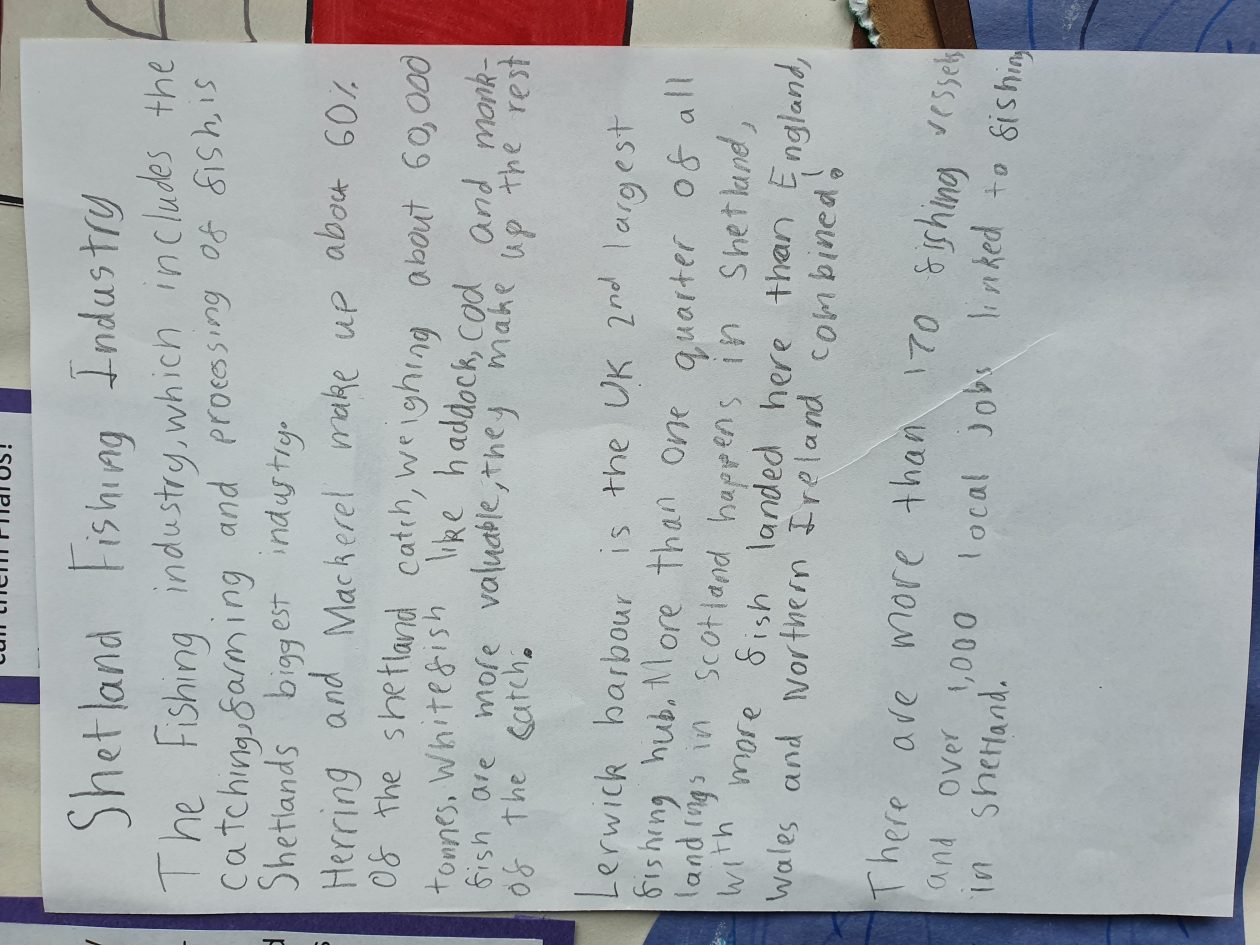 Shetland Fishing Industry
The Fishing industry, which includes the
catching, farming and processing of fish, is
Shetlands biggest industry.
Herring and Mackerel make up about 60%
Of the shetland catch, weighing about 60,000
tonnes. Whitefish like haddock, cod and monk-
fish are more valuable, they make up the rest
of the catch.
Lerwick harbour is the UK 2nd largest
fishing hub. More than one quarter of all
landings in scotland happens in Shetland,
with more fish landed here than England,
wales and Northern Ireland combined!
There are more than 170 fishing vessels
and over 1,000 local jobs linked to fishing
in Shetland.